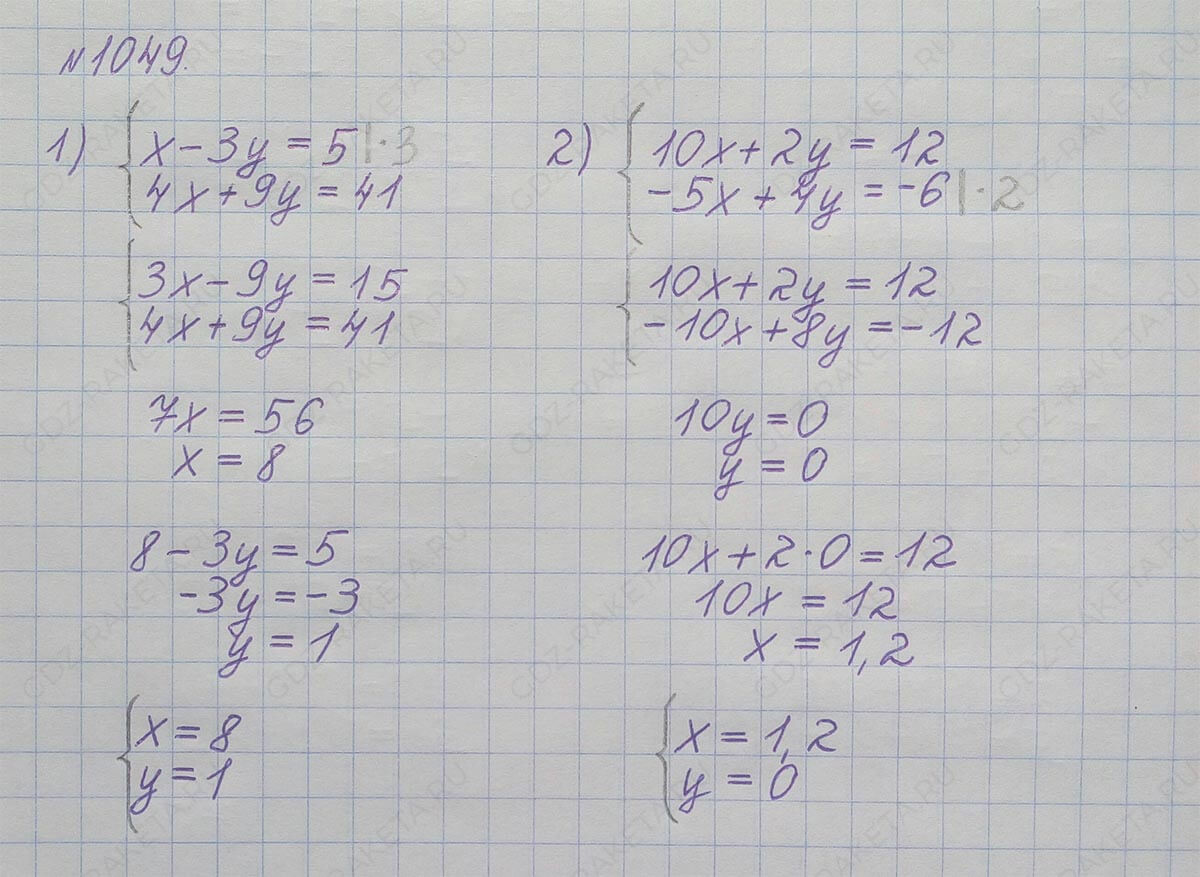 №1049.
1) { x - 3y = 5 |·3
4x + 9y = 41
{ 3x - 9y = 15
4x + 9y = 41
7x = 56
x = 8
8 - 3y = 5
-3y = -3
y = 1
{ x = 8
y = 1
2) { 10x + 2y = 12
-5x + 4y = -6 |·2
{ 10x + 2y = 12
-10x + 8y = -12
10y = 0
y = 0
10x + 2·0 = 12
10x = 12
x = 1,2
{ x = 1,2
y = 0
GDZ-RAKETA.RU